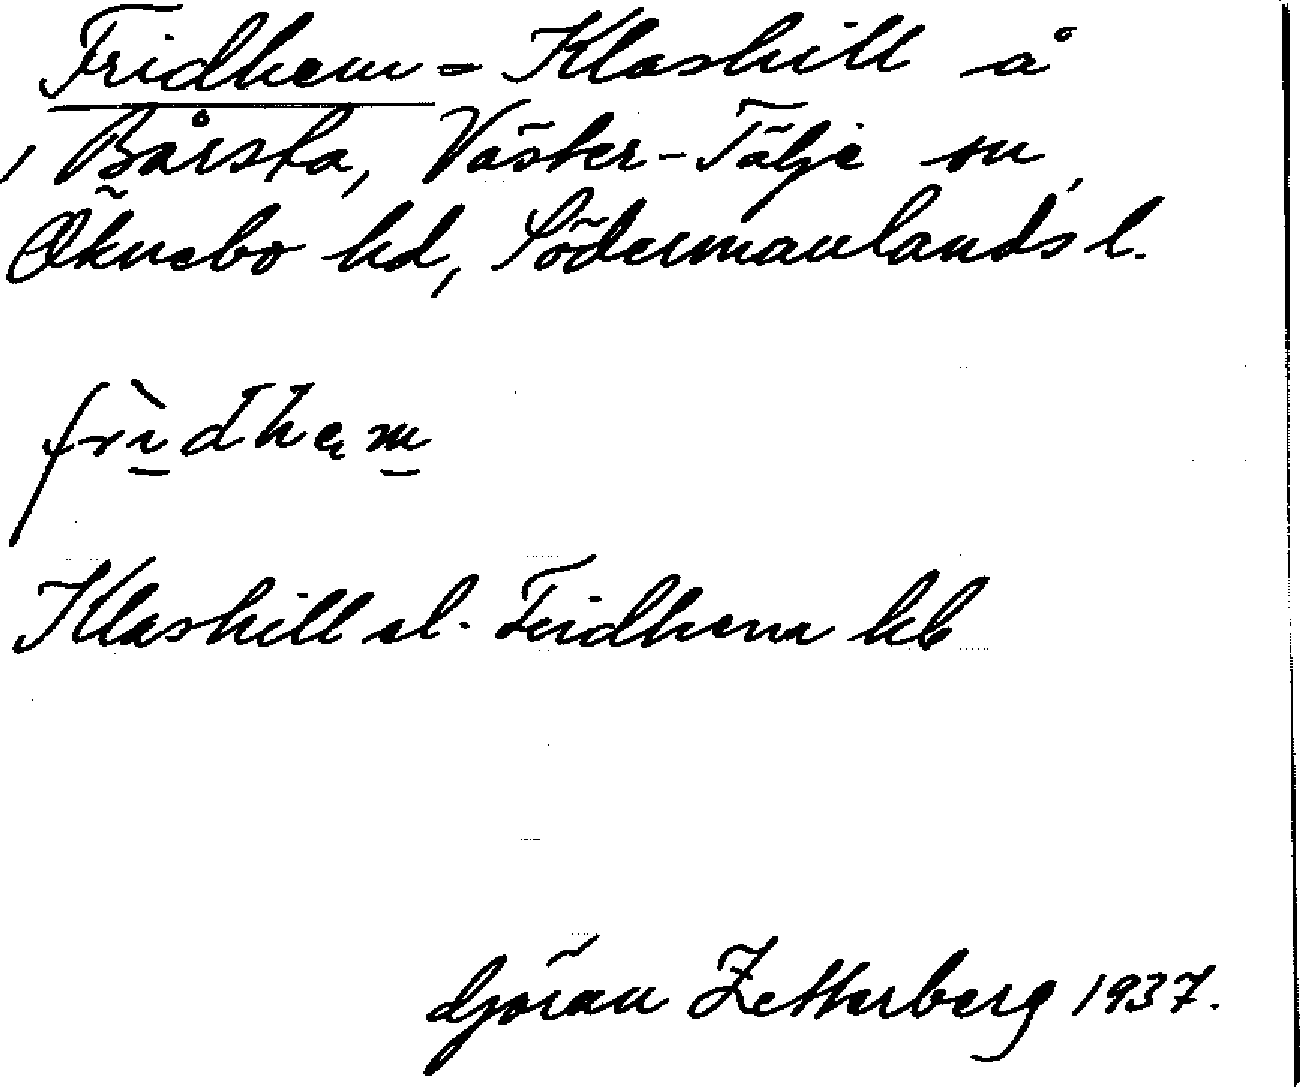 Fridhem = Klashill å
, Bårsta, Väster-Tälje sn,
Öknebo hd, Södermanlands l.
frìdhęm
Klashill el. Fridhem hb
Göran Zetterberg 1937.